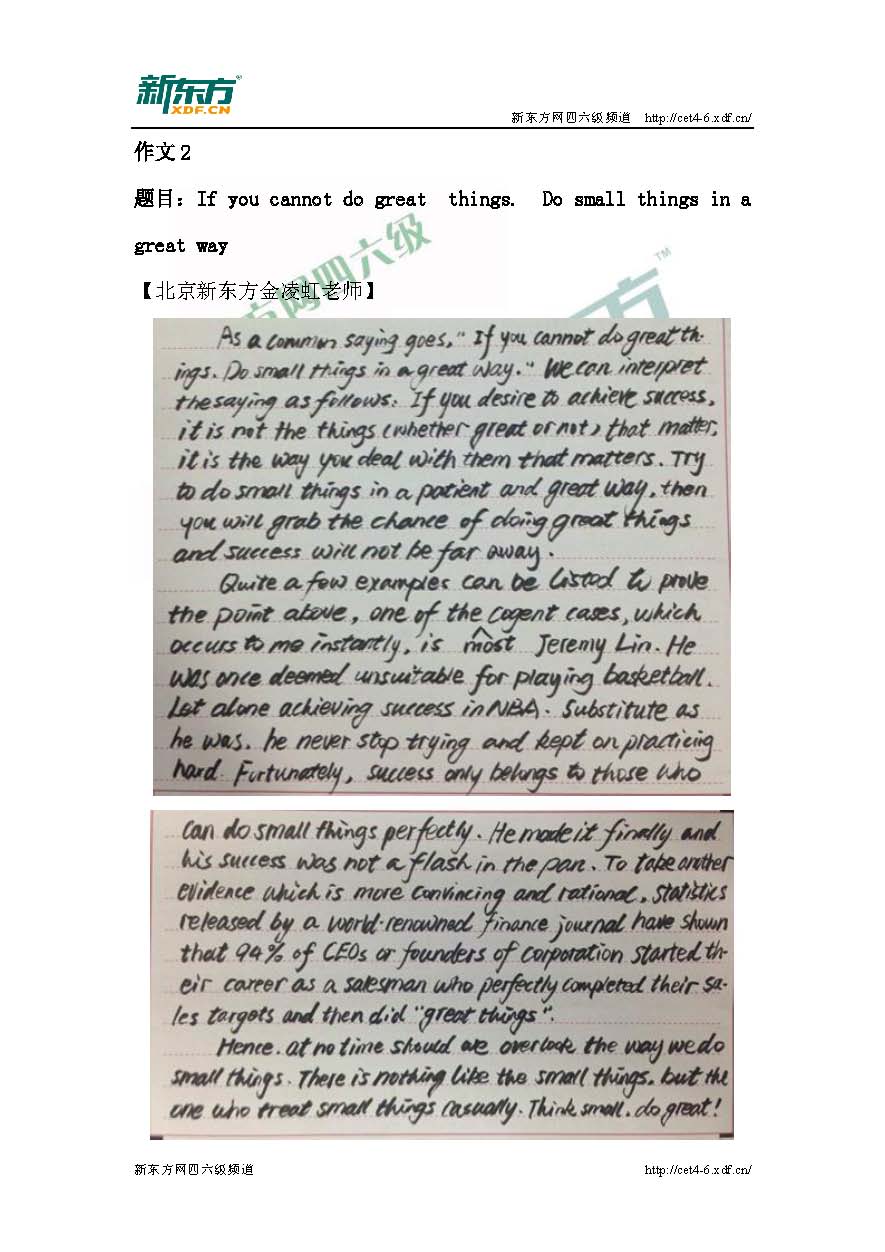 新东方
XDF.CN
新东方网四六级频道 http://cet4-6.xdf.cn/
作文2
题目：If you cannot do great things. Do small things in a
great way
【北京新东方金凌虹老师】
As a common saying goes, "If you cannot do great th-
ings. Do small things in a great way." We can interpret
the saying as follows: If you desire to achieve success,
it is not the things (whether great or not) that matter,
it is the way you deal with them that matters. Try
to do small things in a patient and great way, then
you will grab the chance of doing great things
and success will not be far away.
Quite a few examples can be listed to prove
the point above, one of the cogent cases, which
occurs to me instantly, is most Jeremy Lin. He
was once deemed unsuitable for playing basketball.
Let alone achieving success in NBA. Substitute as
he was, he never stop trying and kept on practicing
hard. Furtunately, success only belongs to those who
can do small things perfectly. He made it finally and
his success was not a flash in the pan. To take another
evidence which is more convincing and rational, statistics
released by a world-renowned finance journal have shown
that 94% of CEOs or founders of corporation started th-
eir career as a salesman who perfectly completed their sa-
les targets and then did "great things".
Hence, at no time should we overlook the way we do
small things. There is nothing like the small things, but the
one who treat small things casually. Think small, do great!
新东方网四六级频道 http://cet4-6.xdf.cn/